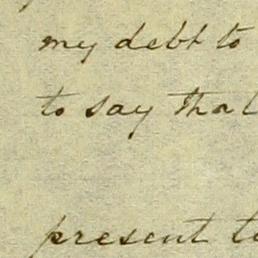 my debt to
to say that
present to